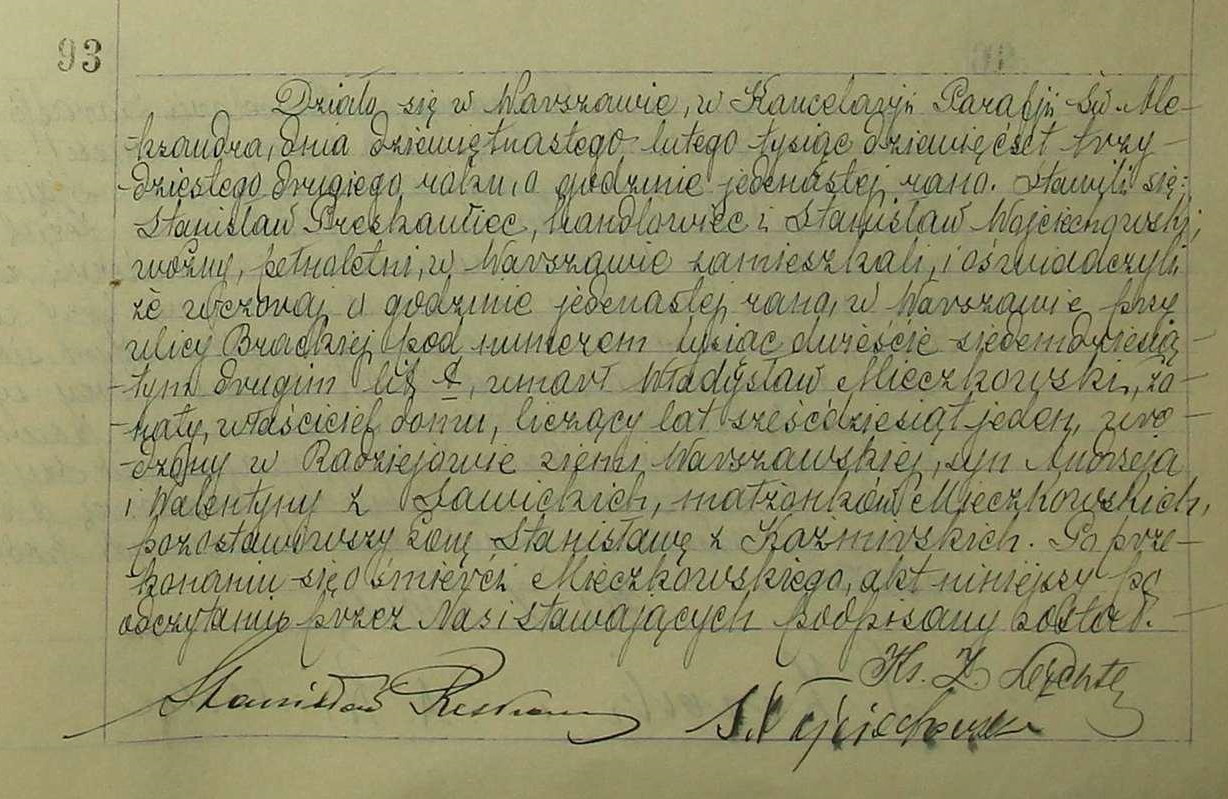 93
Działo się w Warszawie, w Kancelaryi Parafji Św Ale-
ksandra, dnia dziewiętnastego lutego tysiąc dziewięćset trzy-
dziestego drugiego roku, o godzinie jedenastej rano. Stawili się:
Stanisław, handlowiec i Stanisław Wojciechowski,
woźny, pełnoletni, w Warszawie zamieszkali, i oświadczyli
że wczoraj o godzinie jedenastej rano, w Warszawie przy
ulicy Brackiej pod numerem tysiąc dwieście siedemdziesią-
tym drugim lit, umarł Władysław Mieczkowski, żo-
naty, właściciel domu, liczący lat sześćdziesiąt jeden, uro-
dzony w Radziejowie ziemi Warszawskiej, syn Andrzeja
i Walentyny z Sawickich, małżonków Mieczkowskich,
pozostawiwszy żonę Stanisławę z Kaźmirskich. Po prze-
konaniu się o śmierci Mieczkowskiego, akt niniejszy po
odczytaniu przez Nas i stawających podpisany został.
Ks. Z
Stanisław
S. Wojciechowski